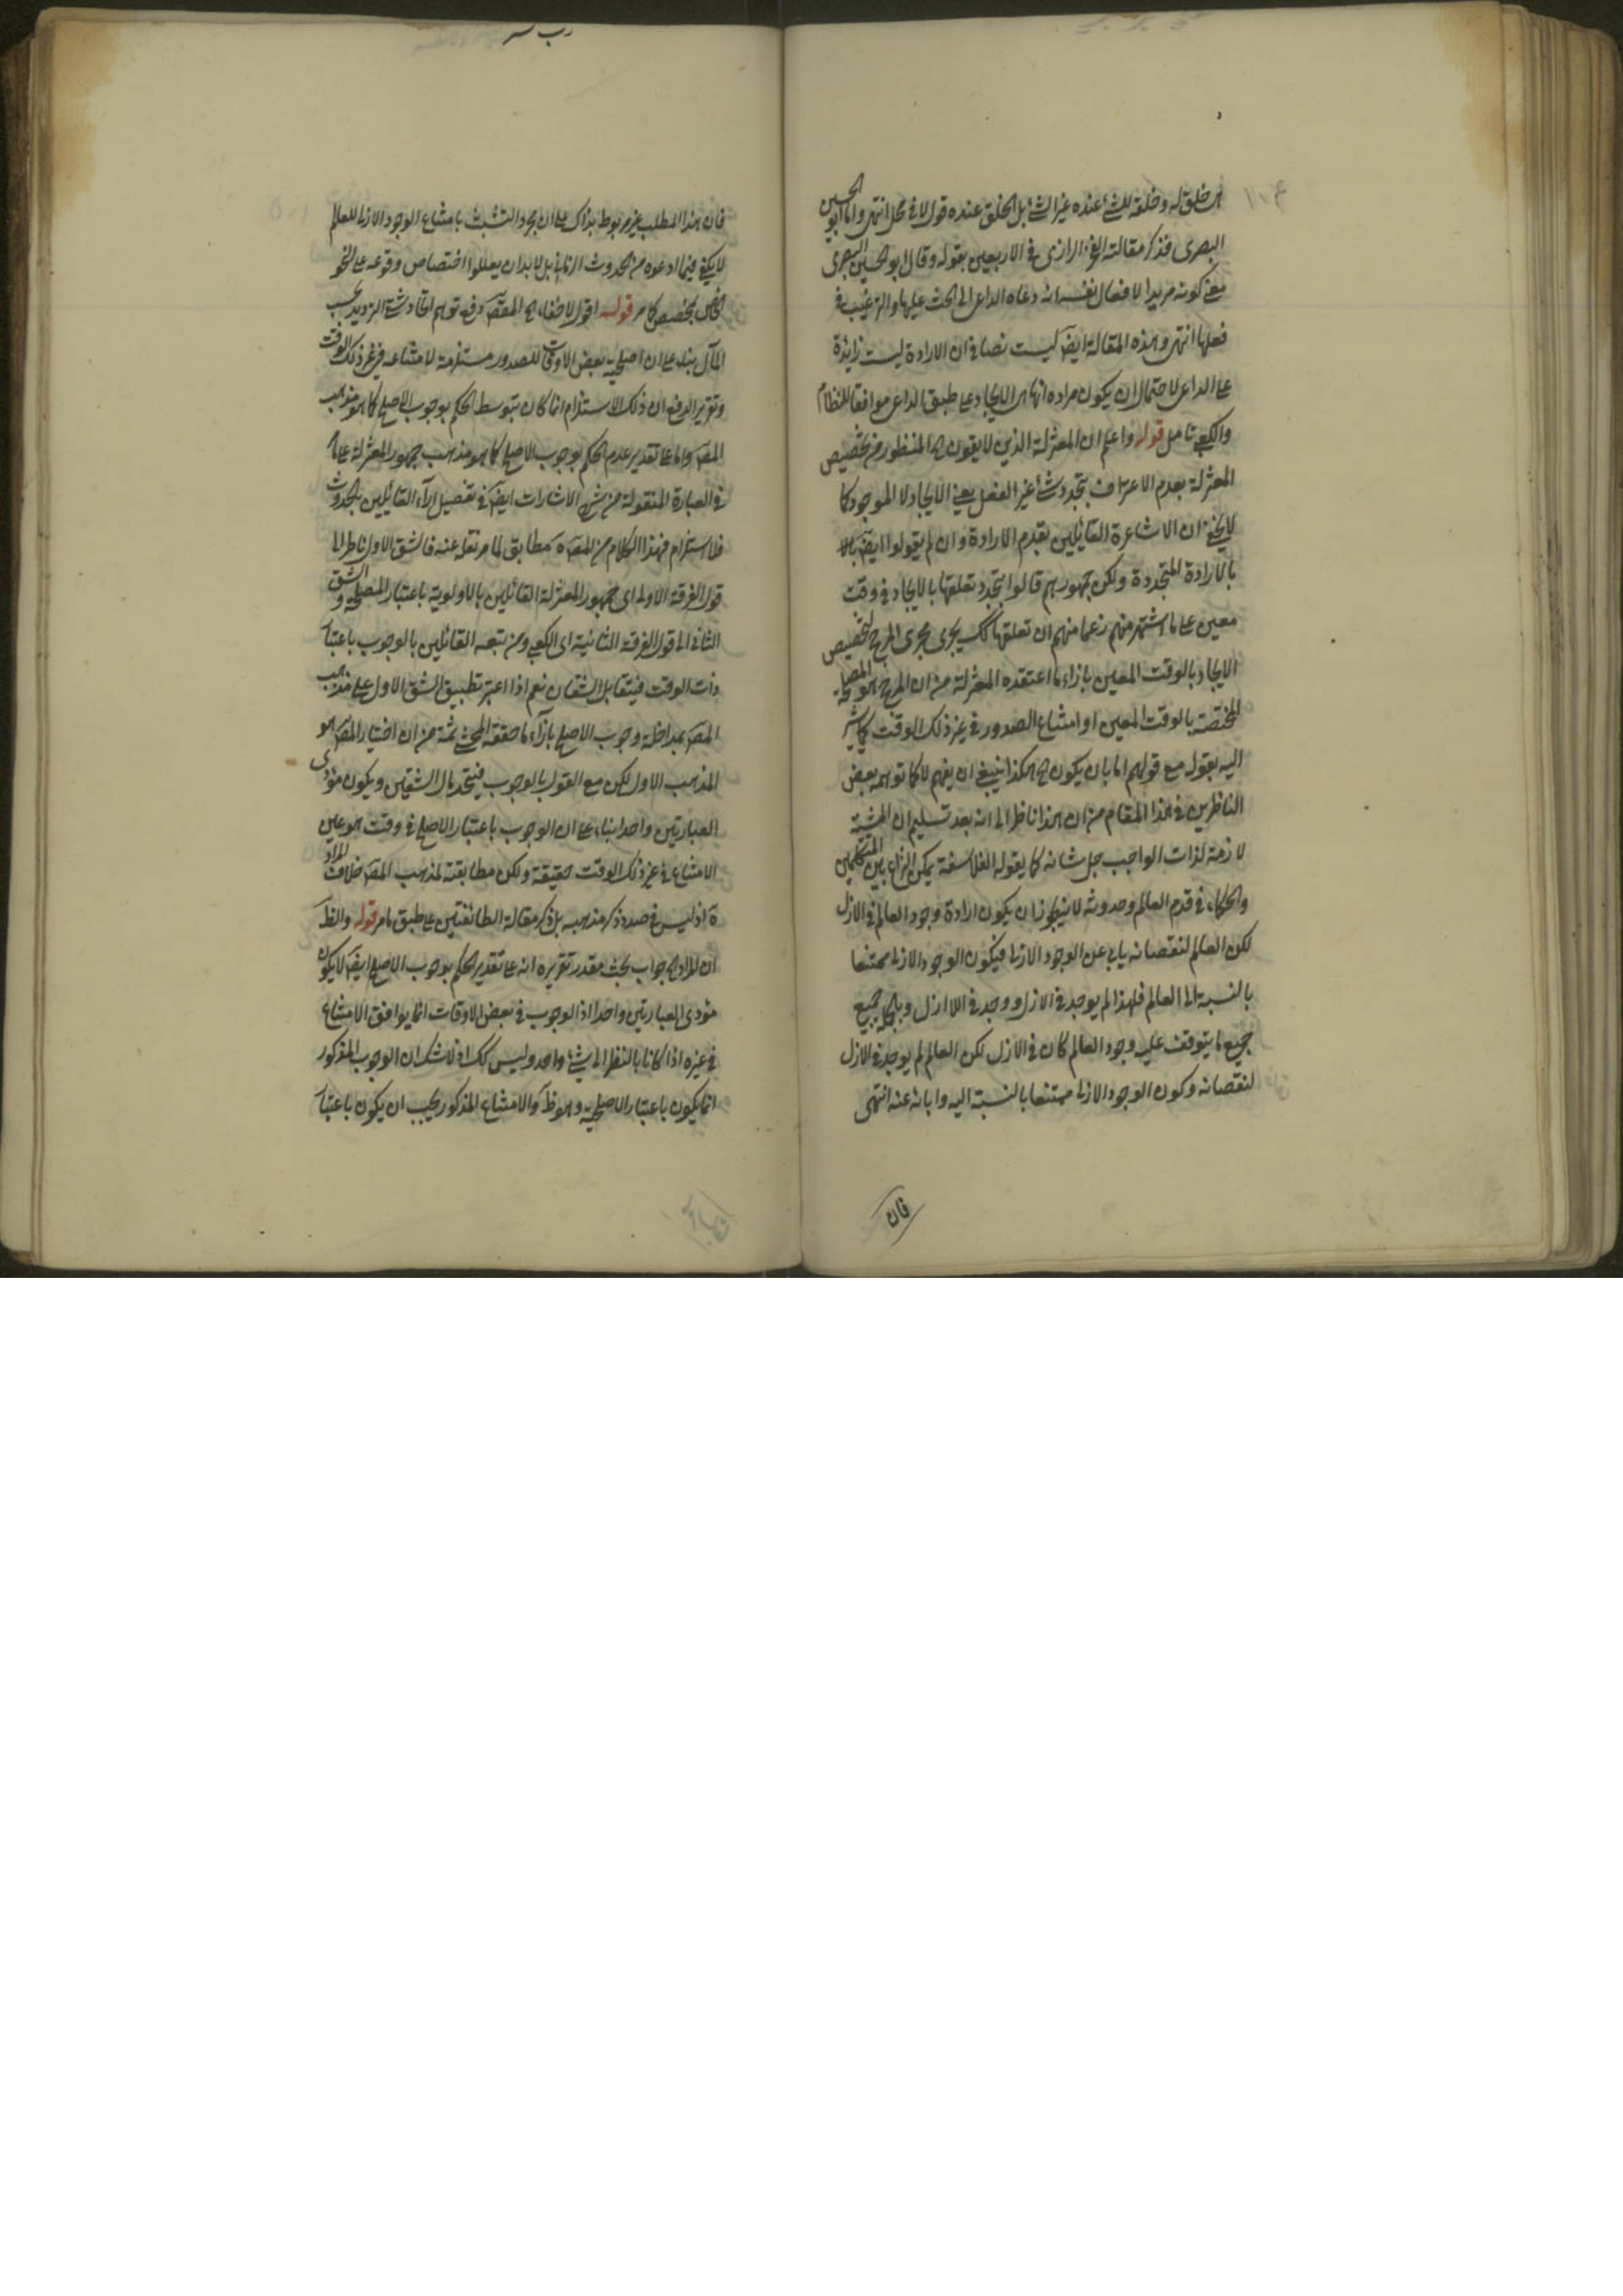 هى خلق له وخلقه للشئ عنده غير الشئ بل الخلق عنده قول لا فى محل انتهى واما ابو الحسين
البصرى فذكر مقالته الفخر الرازى فى الاربعين بقوله وقال ابو الحسين البصرى
معنى كونه مريدا لافعال نفسه انه دعاه الداعى الى الحث عليها والترغيب فى
فعلها انتهى وهذه المقالة ايضا ليست نصا فى ان الارادة ليست زايدة
على الداعى لاحتمال ان يكون مراده انها هى الايجاد على طبق الداعى موافقا للنظام
والكعبى تامل قوله واعلم ان المعتزلة الذين لا يقون اه المنظور من تخصيص
المعتزلة بعدم الاعتراف بتجدد شئ غير الفعل يعنى الايجاد لا الموجود كما
لا يخفى ان الاشاعرة القائلين بقدم الارادة وان لم يقولوا ايضا بالا
بالارادة المتجددة ولكن جمهورهم قالوا بتجدد تعلقها بالايجاد فى وقت
معين على ما اشتهر منهم زعما منهم ان تعلقها كك يجرى مجرى المرجح لتخصيص
الايجاد بالوقت المعين بازاء ما اعتقده المعتزلة من ان المرجح هو المصلحة
المختصة بالوقت المعين او امتناع الصدور فى غير ذلك الوقت كما يشير
اليه بقوله مع قولهم اما بان يكون اه هكذا ينبغى ان يفهم لا كما توهمه بعض
الناظرين فى هذا المقام من ان هذا ناظر الى انه بعد تسليم ان المشية
لازمة لذات الواجب جل شانه كما يقوله الفلاسفة يمكن النزاع بين المتكلمين
والحكماء فى قدم العالم وحدوثه لا يتجوز ان يكون ارادة وجود العالم فى الازل
لكن العالم لنقصانه يابى عن الوجود الازلى فيكون الوجود الازلى ممتنعا
بالنسبة الى العالم فلهذا لم يوجد فى الازل ووجد فى اللا ازل وبالجملة جميع
جميع ما يتوقف عليه وجود العالم كان فى الازل لكن العالم لم يوجد فى الازل
لنقصانه وكون الوجود الازلى ممتنعا بالنسبة اليه وابائه عنه انتهى
فان
فان هذا المطلب غير مربوط بذاك على ان مجرد التشبث بامتناع الوجود الازلى للعالم
لا يكفى فيما ادعوه من الحدوث الزمانى بل لا بد ان يعللوا اختصاص وقوعه على النحو
الخاص بمخصص كما مر قوله اقول لا خفاء اه المقصد دفع توهم اتحاد شقى الترديد بحسب
المآل بناء على ان اصلحية بعض الاوقات للصدور مستلزمة لامتناعه فى غير ذلك الوقت
وتقرير الدفع ان ذلك الاستلزام انما كان بتوسط الحكم بوجوب الاصلح كما هو مذهب
المصَ واما على تقدير عدم الحكم بوجوب الاصلح كما هو مذهب جمهور المعتزلة على ما
فى العبارة المنقولة من شرح الاشارات ايضا فى تفصيل آراء القائلين بالحدوث
فلا استلزام فهذا الكلام من المصَ مطابق لما مر نقله عنه فالشق الاول ناظر الى
قول الفرقة الاولى اى جمهور المعتزلة القائلين بالاولوية باعتبار المصلحة والشق
الثانى الى قول الفرقة الثانية اى الكعبى ومن تبعه القائلين بالوجوب باعتبار
ذات الوقت فيتقابل الشقان نعم اذا اعتبر تطبيق الشق الاول على مذهب
المصَ بمداخلة وجوب الاصلح بازآء ما حققه المحشى ثمة من ان اختيار المصَ هو
المذهب الاول لكن مع القول بالوجوب فيتحد مآل الشقين ويكون مؤدى
العبارتين واحدا بناء على ان الوجوب باعتبار الاصلح فى وقت هو عين
الامتناع فى غير ذلك الوقت حقيقة ولكن مطابقته لمذهب المصَ خلاف المراد
اذ ليس فى صدد ذكر مذهبه بل ذكر مقالة الطائفتين على طبق ما مر قوله والظَ
ان المراد اه جواب بحث مقدر تقريره انه على تقدير الحكم بوجوب الاصلح ايضا لا يكون
مؤدى العبارتين واحدا اذ الوجوب فى بعض الاوقات انما يوافق الامتناع
فى غيره اذا كانا بالنظر الى شئ واحد وليس كك اذ لا شك ان الوجوب المذكور
انما يكون باعتبار الاصلحية وهو ظَ والامتناع المذكور يجب ان يكون باعتبار